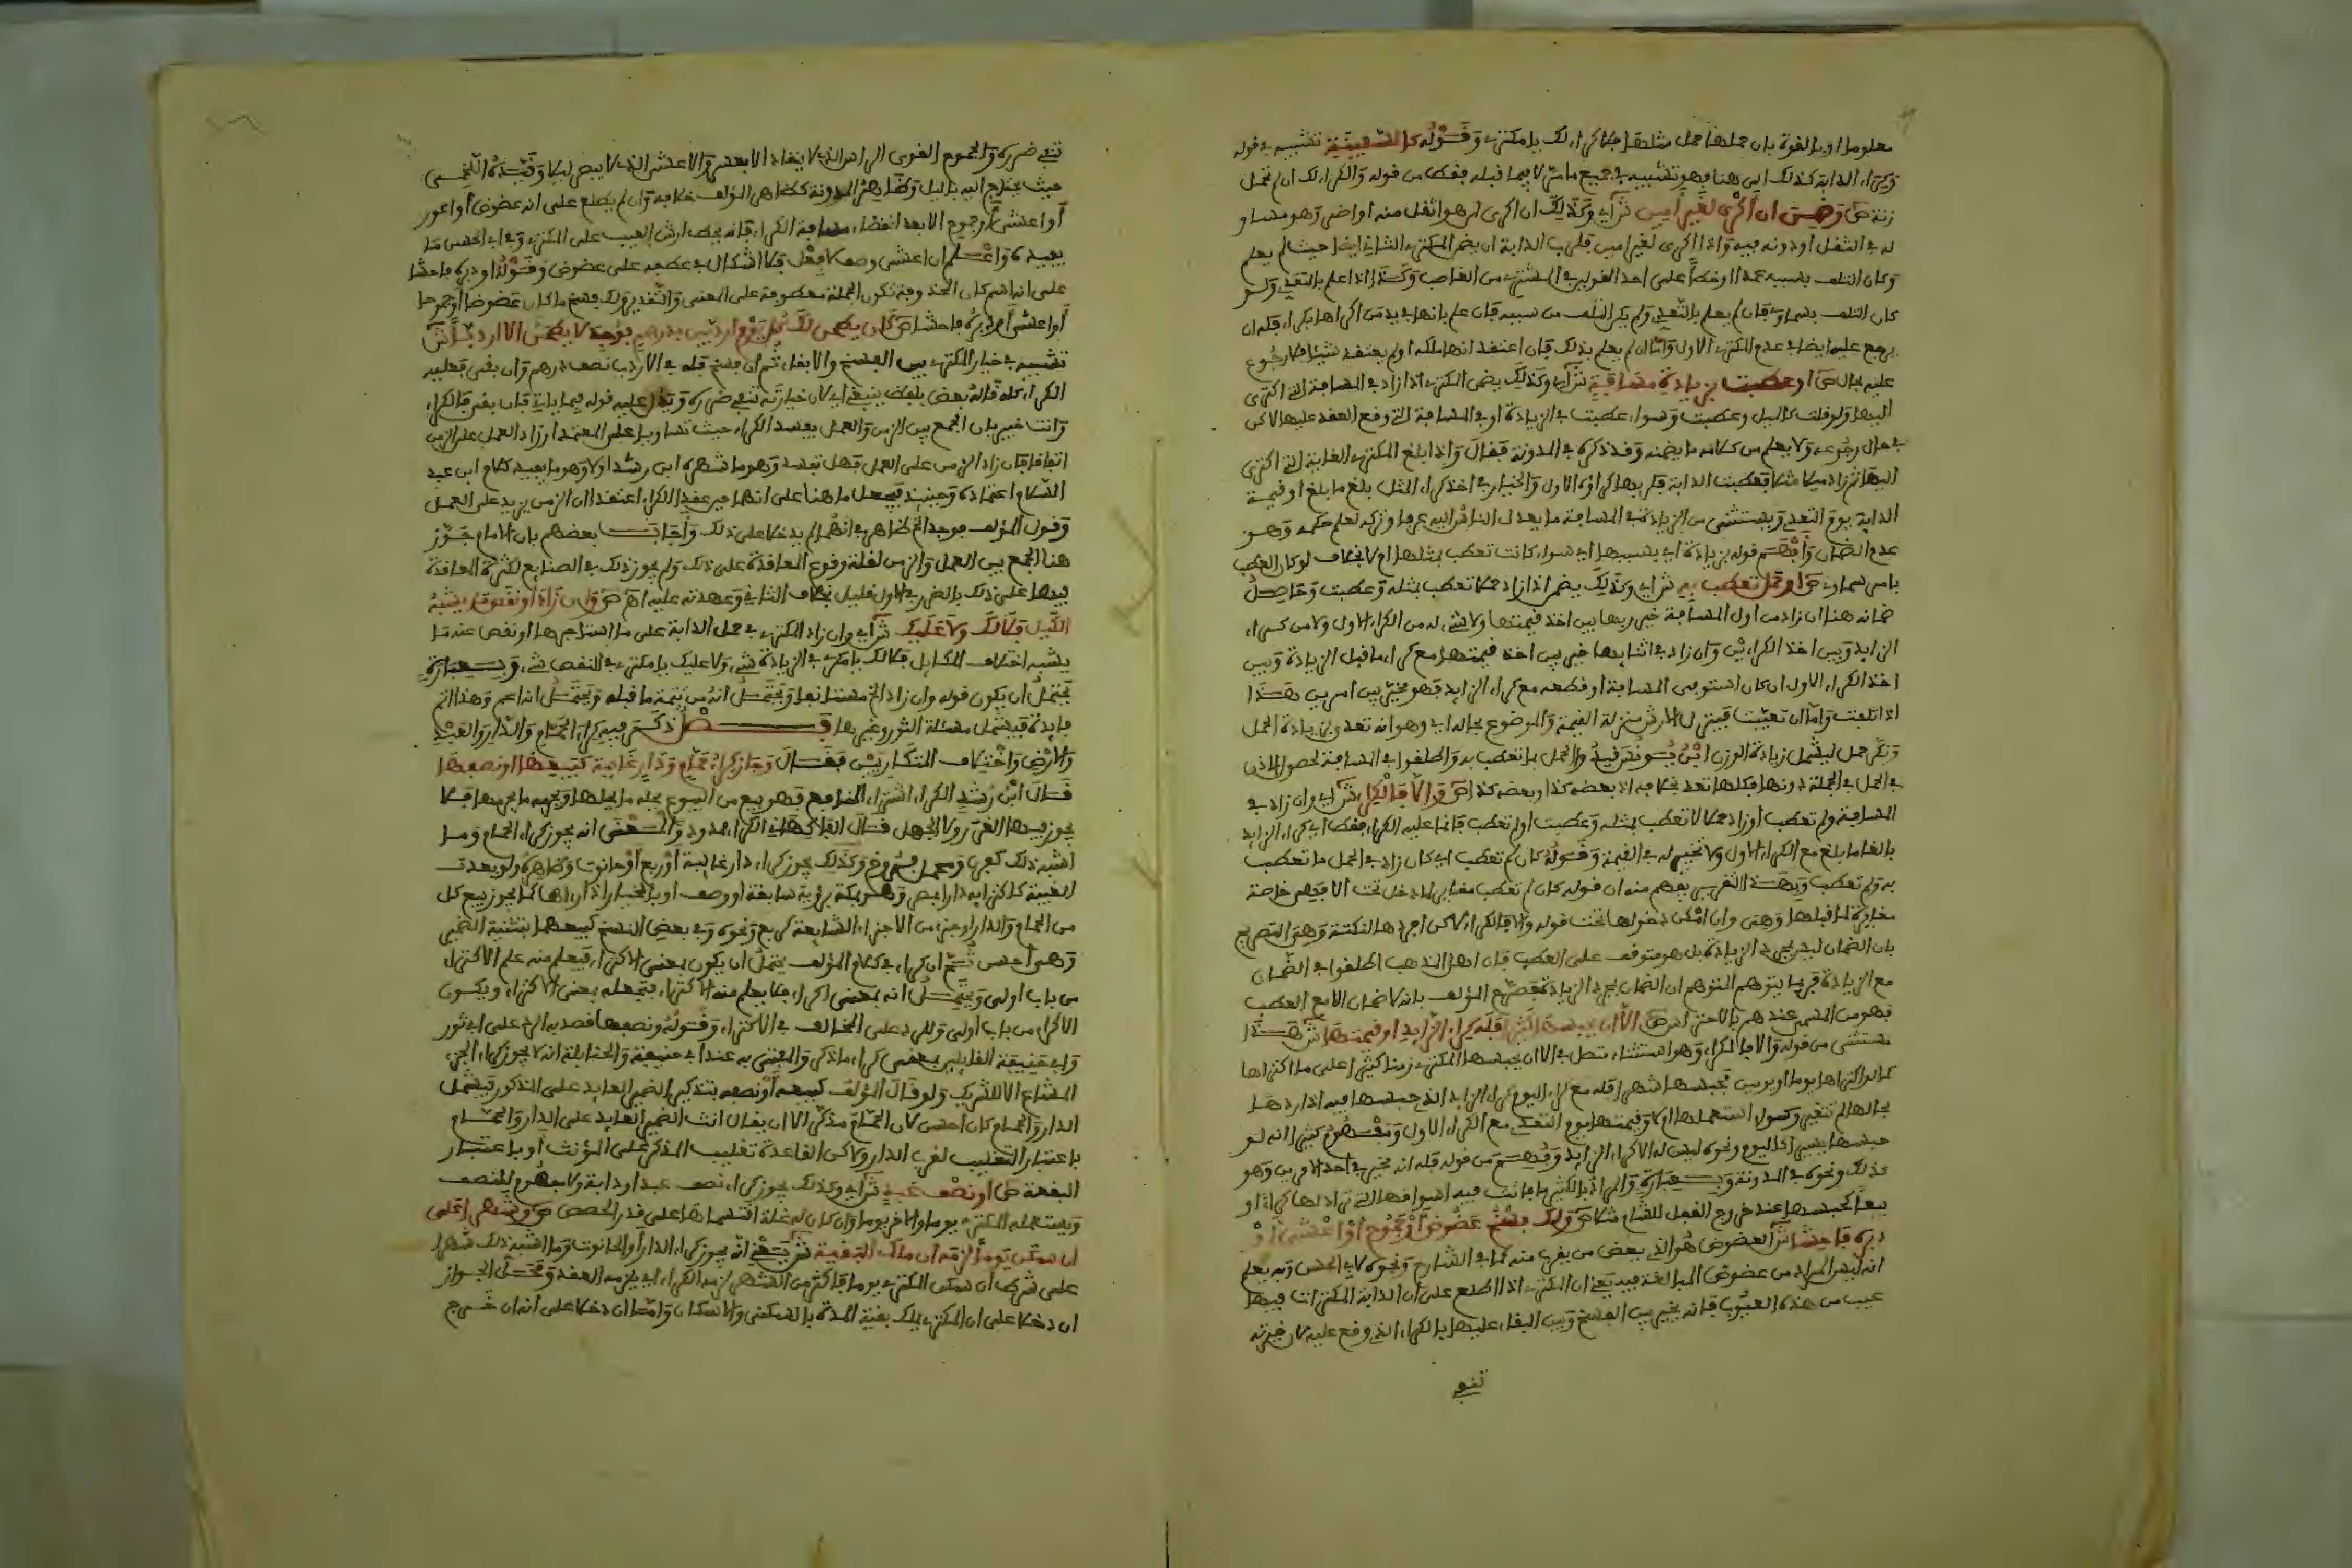 معلوما او بالقوة بان حملها حمل مثلها فلا كراء لك يا مكتري وقوله كالسفينة تشبيه في قوله
وكراء الدابة كذلك اي هنا فهو تشبيه في جميع ما مر لا فيما قبله فقط من قوله والكراء لك ان لم تحمل
زنة ص وضمن ان اكرى لغير امين ش اي وكذلك ان اكرى لمن هو اثقل منه او اضر وهو مساو
له في الثقل او دونه فيه واذا اكرى لغير امين فلرب الدابة ان يضمن المكتري الثاني ايضا حيث لم يعلم
وكان التلف بسببه عمدا او خطأ على احد القولين في المشتري من الغاصب وكذا اذا علم بالتعدي ولو
كان التلف بسماوي فان لم يعلم بالتعدي ولم يكن التلف من سببه فان علم بانها بيد من اكراها بكراء فله ان
يرجع عليه ايضا في عدم المكتري الاول وان لم يعلم بذلك فان اعتقد انها ملكه او لم يعتقد شيئا فلا رجوع
عليه بحال ص او عطبت بزيادة مسافة ش اي وكذلك يضمن المكتري اذا زاد في المسافة التي اكترى
اليها ولو قلت كالميل وعطبت وسواء عطبت في الزيادة او في المسافة التي وقع العقد عليها لاكن
في حال رجوعه ولا يعلم من كلامه ما يضمنه وقد ذكره في المدونة فقال واذا بلغ المكتري الغاية التي اكترى
اليها ثم زاد ميلا مثلا فعطبت الدابة فلربها كراؤه الاول والخيار في اخذ كراء المثل بلغ ما بلغ او قيمة
الدابة يوم التعدي ويستثنى من الزيادة في المسافة ما يعدل الناس اليه عرفا وتركه لعلم حكمه وهو
عدم الضمان وافهم قوله بزيادة اي بسببها اي سواء كانت تعطب بمثلها ام لا بخلاف لو كان العطب
بامر سماوي ص او حمل تعطب به ش اي وكذلك يضمن اذا زاد حملا تعطب بمثله وعطبت وحاصل
ضمانه هنا ان زاد من اول المسافة خير ربها بين اخذ قيمتها ولا شيء له من الكراء الاول ولا من كراء
الزايد وبين اخذ الكراءين وان زاد في اثنايها خير بين اخذ قيمتها مع كراء ما قبل الزيادة وبين
اخذ الكراء الاول ان كان استوفى المسافة او قطعه مع كراء الزايد فهو مخير بين امرين هذا
اذا تلفت واما ان تعيبت فينزل الارش منزلة القيمة والموضوع بحاله اي وهو انه تعدى بزيادة الحمل
ونكر حمل ليشمل زيادة الوزن ابن يونس قيد والحمل بما تعطب به واطلقوا في المسافة لحصول الاذن
في الحمل في الجملة دونها فكلها تعد بخلافه اذ بعضه كذا وبعضه كذا ص والا فالكراء ش اي وان زاد في
المسافة ولم تعطب او زاد حملا لا تعطب بمثله وعطبت او لم تعطب فانما عليه الكراء فقط اي كراء الزايد
بالغا ما بلغ مع الكراء الاول ولا تخيير له في القيمة وقوله كان لم تعطب اي كان زاد في الحمل ما تعطب
به ولم تعطب وبهذا التقرير يفهم منه ان قوله كان لم تعطب مغاير لما دخل تحت الا فيهم خاصة
مغايرة لما قبلها وهي وان امكن دخولها تحت قوله والا فالكراء لاكن افردها لنكتة وهي التصريح
بان الضمان ليس بمجرد الزيادة بل هو متوقف على العطب فان اهل المذهب اطلقوا في الضمان
مع الزيادة فربما يتوهم المتوهم ان الضمان بمجرد الزيادة فصرح المؤلف بانه لا ضمان الا مع العطب
فهو من المسمى عندهم بالاحتراس ص الا ان يحبسها كثيرا فله كراء الزايد او قيمتها ش هذا
مستثنى من قوله والا فالكراء وهو استثناء متصل اي الا ان يحبسها المكتري زمنا كثيرا على ما اكتراها
كما لو اكتراها يوما او يومين فحبسها شهرا فله مع كراء اليوم كراء الزايد الذي حبسها فيه اذا ردها
بحالها لم تتغير وسواء استعملها ام لا وقيمتها يوم التعدي مع الكراء الاول ومفهوم كثيرا انه لو
حبسها يسيرا كاليوم ونحوه ليس له الا كراء الزايد وفهم من قوله فله انه مخير في احد الامرين وهو
كذلك ونحوه في المدونة وبعبارة والمراد بالكثير ما فاتت فيه اسواقها التي تراد لها كراء او
بيعا كحبسها عند خروج القفل للشام مثلا ص ولك فسخ عضوض او جموح او اعشى او
دبره فاحشا ش العضوض هو الذي يعض من يقرب منه كما في الشارح ونحوه لابي الحسن وبه يعلم
انه ليس المراد من عضوض المبالغة فيه يعني ان المكتري اذا اطلع على ان الدابة المكتراة فيها
عيب من هذه العيوب فانه يخير بين الفسخ وبين البقاء عليها بالكراء الذي وقع عليه لان خيرته
تنفي
تنفي ضرره والجموح القوي الراس الذي لا ينقاد الا بعسر والاعشى الذي لا يبصر ليلا وقيده اللخمي
حيث يحتاج اليه بالليل وظاهر المدونة كظاهر المؤلف خلافه وان لم يطلع على انه عضوض او اعور
او اعشى او جموح الا بعد انقضاء مسافة الكراء فانه يحط ارش العيب على المكتري وفي ابي الحسن ما
يفيده واعلم ان اعشى وصف لا فعل فلا اشكال في عطفه على عضوض وقوله او دبره فاحشا
على انه اسم كان المحذوفة تكون الجملة معطوفة على المعنى والتقدير ولك فسخ ما كان عضوضا او جموحا
او اعشى او دبره فاحشا ص كان يطحن لك كل يوم اردبين بدرهم فوجد لا يطحن الا اردبا ش
تشبيه في خيار المكتري بين الفسخ والابقاء ثم ان فسخ فله في الاردب نصف درهم وان بقي فعليه
الكراء كله قاله بعض بلفظ ينبغي اي لان خيرته تنفي ضرره ويدل عليه قوله فيما ياتي فان بقي فالكراء
وانت خبير بان الجمع بين الزمن والعمل يفسد الكراء حيث تساويا على المعتمد او زاد العمل على الزمن
اتفاقا فان زاد الزمن على العمل فهل تفسد وهو ما شهره ابن رشد او لا وهو ما يفيده كلام ابن عبد
السلام اعتماده وحينئذ فيحمل ما هنا على انهما حين عقد الكراء اعتقدا ان الزمن يزيد على العمل
وقول المؤلف فوجد الخ ظاهر في انهما لم يدخلا على ذلك واجاب بعضهم بان الامام جوز
هنا الجمع بين العمل والزمن لقلة وقوع المعاقدة على ذلك ولم يجوز ذلك في الصنايع لكثرة المعاقدة
فيها على ذلك فالضرر في الاول قليل بخلاف الثاني وعهدته عليه اهـ ص وان زاد او نقص ما يشبه
الكيل فلا لك ولا عليك ش اي وان زاد المكتري في حمل الدابة على ما استاجرها او نقص عنه ما
يشبه اختلاف المكايل فلا لك يا مكري في الزيادة شيء ولا عليك يا مكتري في النقص شيء وبعبارة
يحتمل ان يكون قوله وان زاد الخ مستانفا ويحتمل انه من تتمة ما قبله ويحتمل انه اعم وهذا اتم
فايدة فيشمل مسئلة الثور وغيرها فصل ذكر فيه كراء الحمام والدار والعبد
والارض واختلاف المتكاريين فقال وجاز كراء حمام ودار غايبة كبيعها او نصفها
قال ابن رشد الكراء اشتراء المنافع فهو بيع من البيوع يحله ما يحلها ويحرمه ما يحرمها فلا
يجوز فيها الغرر ولا الجهل قال الفاكهاني الكراء ممدود والمعنى انه يجوز كراء الحمام وما
اشبه ذلك كفرن ومعمل فروخ وكذلك يجوز كراء دار غايبة او ربع او حانوت وظاهره ولو بعدت
الغيبة كاكترايه دارا بمصر وهو بمكة برؤية سابقة او وصف او بالخيار اذا راها كما يجوز بيع كل
من الحمام والدار او جزء من الاجزاء الشايعة كربع ونحوه وفي بعض النسخ كبيعهما بتثنية الضمير
وهي احسن ثم ان كراء في كلام المؤلف يحتمل ان يكون بمعنى الاكتراء فيعلم منه علم الاكراء
من باب اولى ويحتمل انه بمعنى اكراء فلا يعلم منه الاكتراء فتجعله بمعنى الاكتراء ويكون
الاكراء من باب اولى وللرد على المخالف في الاكتراء وقوله ونصفها قصد به الرد على ابي ثور
وابي حنيفة القايلين بمنع كراء ما ذكر والمفتى به عند ابي حنيفة والحنابلة انه لا يجوز كراء الجزء
المشاع الا للشريك ولو قال المؤلف كبيعه او نصفه بتذكير الضمير العايد على المذكور فيشمل
الدار والحمام كان احسن لان الحمام مذكر الا ان يقال انث الضمير العايد على الدار والحمام
باعتبار التغليب لقرب الدار ولاكن القاعدة تغليب المذكر على المؤنث او باعتبار
البقعة ص او نصف عبد ش اي وكذلك يجوز كراء نصف عبد او دابة ولا مفهوم للنصف
ويستعمله المكتري يوما والاخر يوما وان كان له غلة اقتسماها على قدر الحصص ص وشهرا على
ان سكن يوما لزمه ان ملك البقية ش يعني انه يجوز كراء الدار او الحانوت وما اشبه ذلك شهرا
على شرط ان سكن المكتري يوما فاكثر من الشهر لزمه الكراء اي يلزمه العقد ومحل الجواز
ان دخلا على ان المكتري يملك بقية المدة بالسكنى والاسكان واما ان دخلا على انه ان خرج